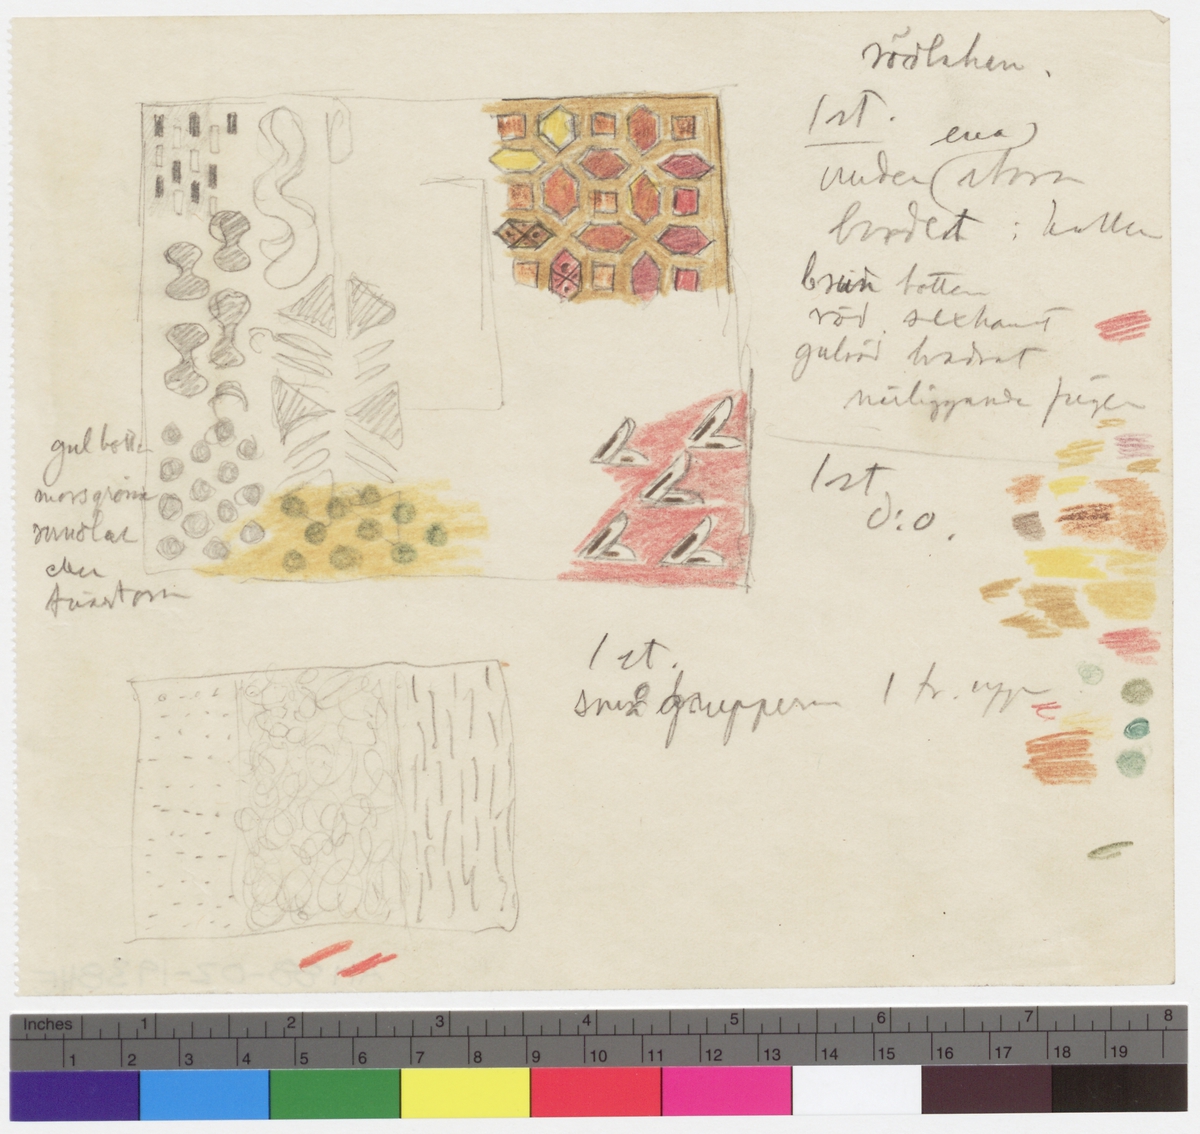 rödlaken.
1 st.
ena
under stora
bordet : hallen
brun botten
röd sexkant
gulröd kvadrat
närliggande färger
1 st
d:o.
gul botten
mossgröna
rundlar
eller
tvärtom
1 st.
små grupper
1 tr. upp
Inches 1 2 3 4 5 6 7 8
1 2 3 4 5 6 7 8 9 10 11 12 13 14 15 16 17 18 19